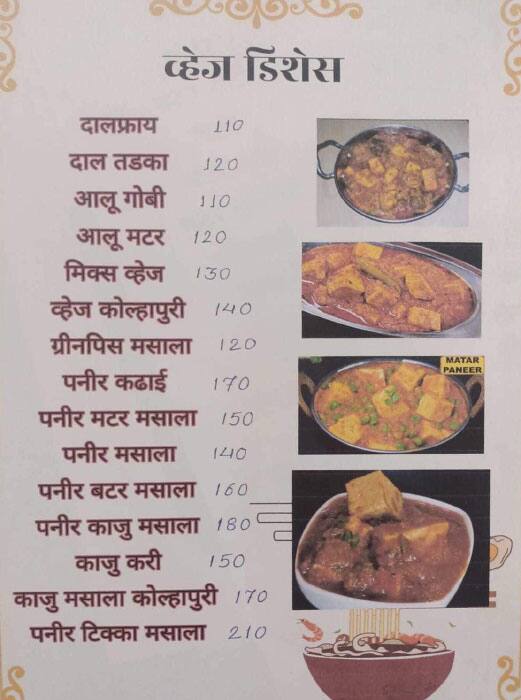 व्हेज डिशेस
दालफ्राय 110
दाल तडका 120
आलू गोबी 110
आलू मटर 120
मिक्स व्हेज 130
व्हेज कोल्हापुरी 140
ग्रीनपिस मसाला 120
पनीर कढाई 170
पनीर मटर मसाला 150
पनीर मसाला 140
पनीर बटर मसाला 160
पनीर काजु मसाला 180
काजु करी 150
काजु मसाला कोल्हापुरी 170
पनीर टिक्का मसाला 210
MATAR
PANEER